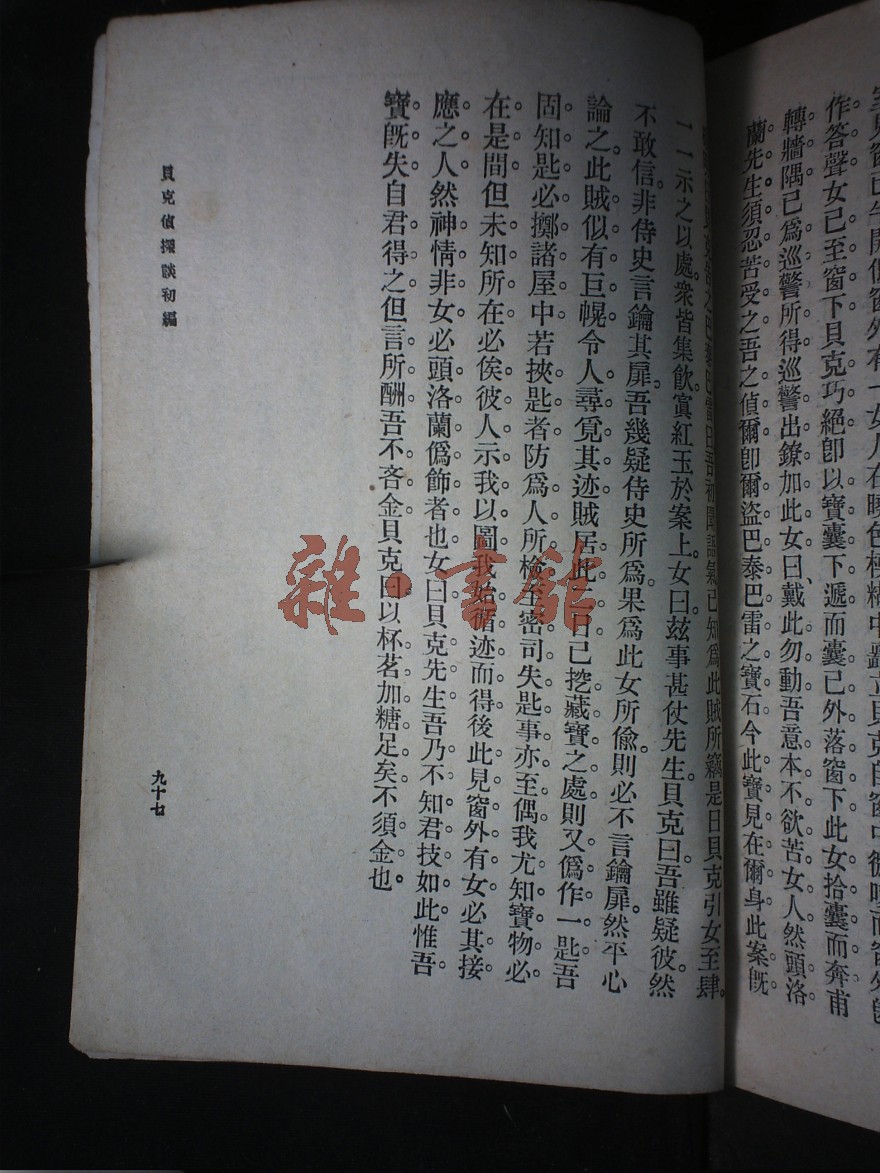 作答聲女已至窗下貝克巧絕卽以寶囊下遞而囊已外落窗下此女拾囊而奔甫
轉牆隅已爲巡警所得巡警出鐐加此女曰、戴此勿動吾意本不欲苦女人然頭洛
蘭先生須忍苦受之吾之偵爾卽爾盜巴泰巴雷之寶石今此寶見在爾身此案旣
巴泰巴雷曰吾初聞語氣已知爲此賊所竊是日貝克引女至肆。
一一示之以處。衆皆集飮寘紅玉於案上。女曰茲事甚仗先生貝克曰吾雖疑彼然
不敢信非侍史言鑰其扉。吾幾疑侍史所爲。果爲此女所偷則必不言鑰扉。然平心
論之此賊似有巨幌。令人尋覓其迹賊居此二日已挖藏寶之處則又僞作一匙。吾
固知匙必擲諸屋中。若挾匙者防爲人所檢。至密司失匙事亦至偶我尤知寶物必
在是間。但未知所在。必俟彼人示我以圖。我始循迹而得後此見窗外有女必其接
應之人。然神情非女必頭洛蘭僞飾者也。女曰貝克先生吾乃不知君技如此。惟吾
寶旣失。自君得之。但言所酬吾不吝金。貝克曰以杯茗加糖足矣。不須金也。
貝克偵探談初編
九十七
雜·書館